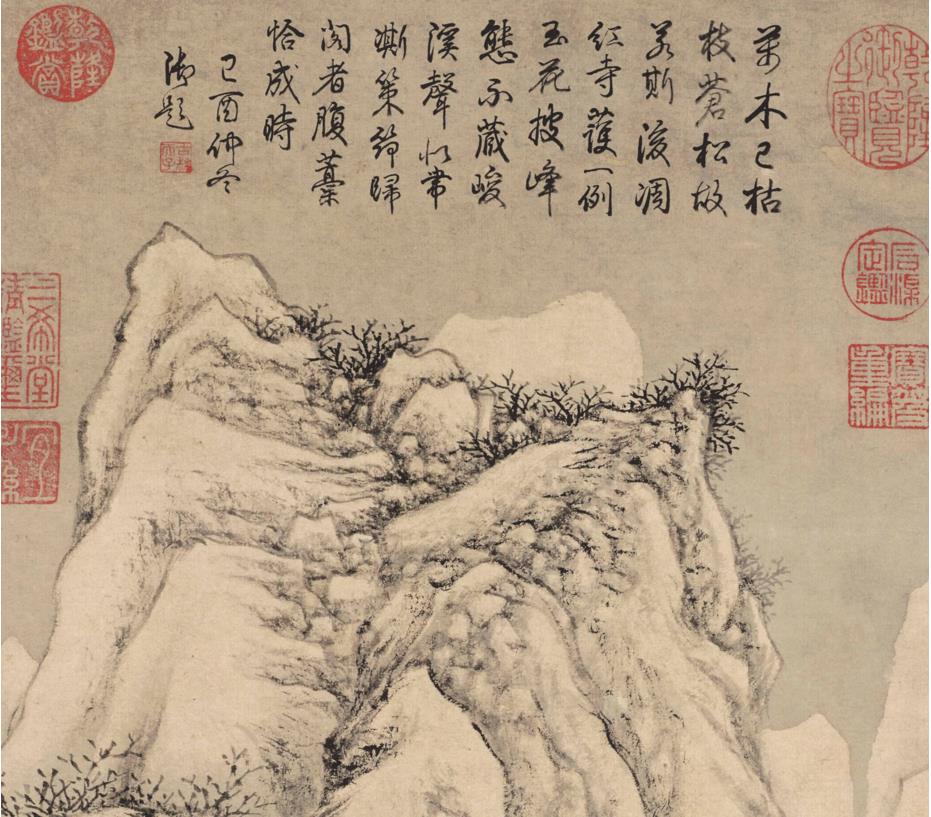 萬木已枯
枝蒼松故
若斯後凋
紅寺護一例
玉花披峰
態不藏峻
溪聲似帶
澌策筇歸
閣者腹藁
恰成時
己酉仲冬
御題
古稀天子
乾隆御覽之寶
石渠定鑑
寶笈重編
乾隆鑑賞
三希堂精鑑璽
宜子孫